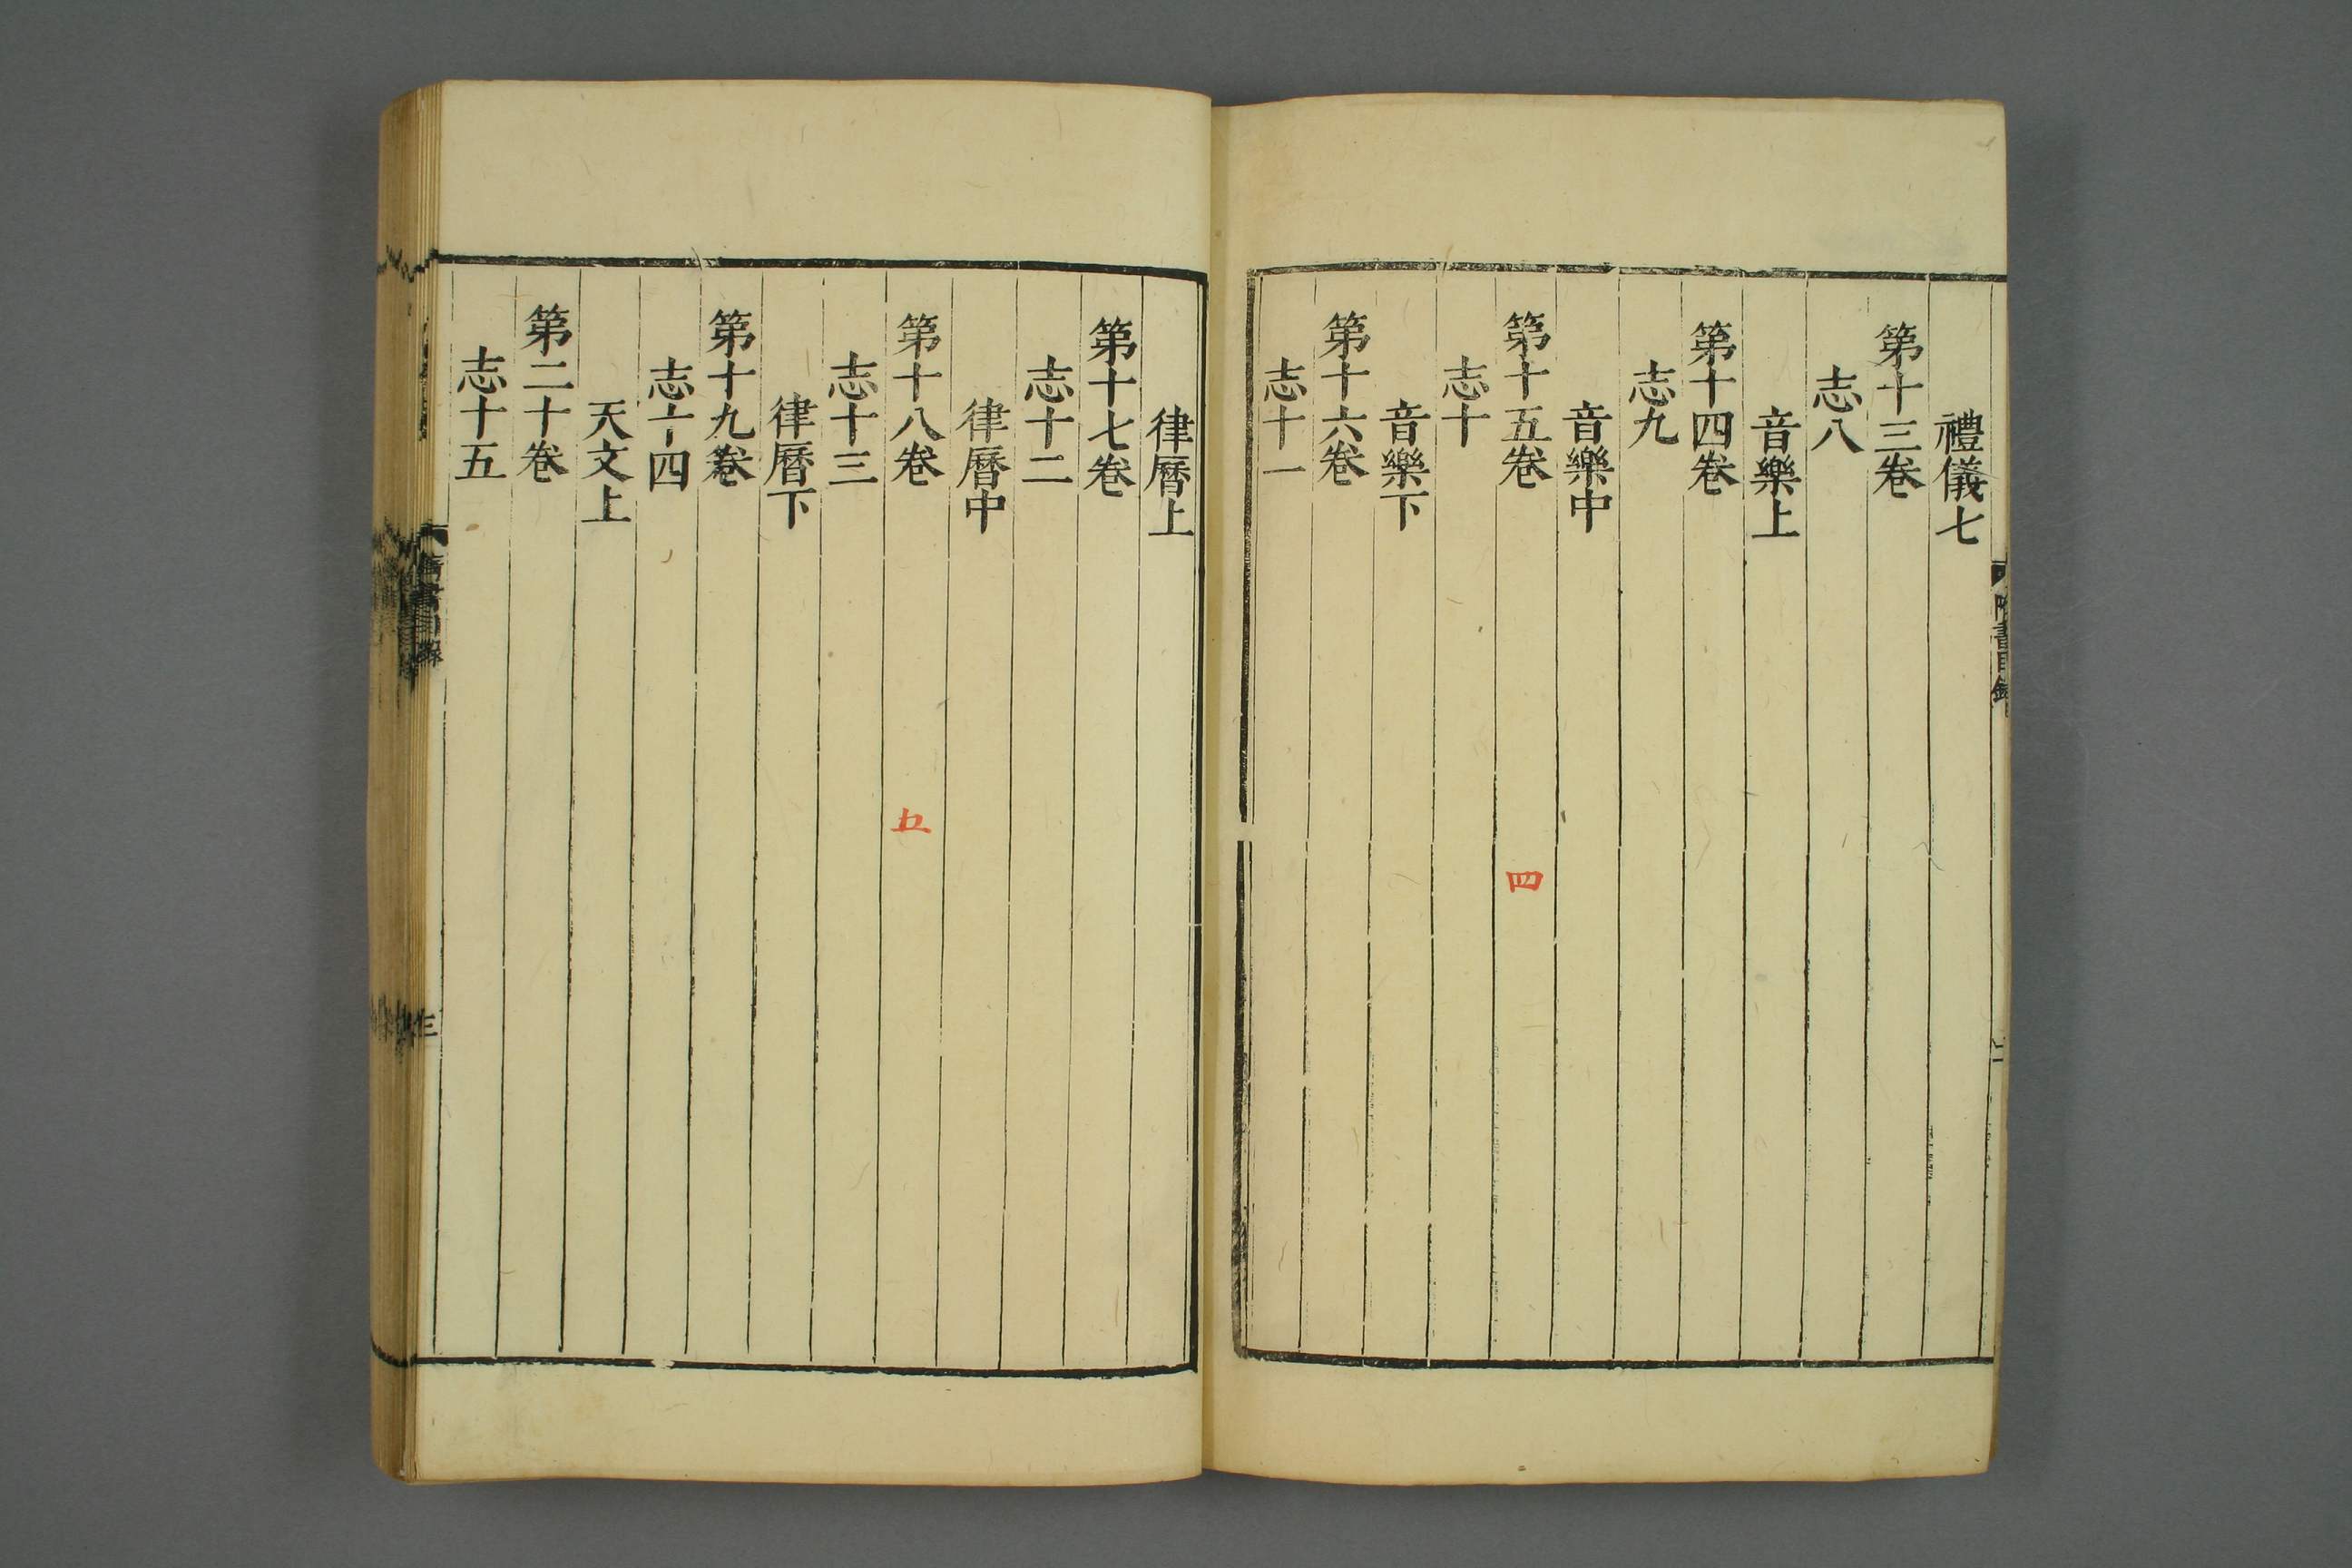 禮儀七
第十三卷
志八
音樂上
第十四卷
志九
音樂中
第十五卷
志十
音樂下
第十六卷
志十一
四
隋書目錄
二
律曆上
第十七卷
志十二
律曆中
第十八卷
志十三
律曆下
第十九卷
志十四
天文上
第二十卷
志十五
五
隋書目錄
三